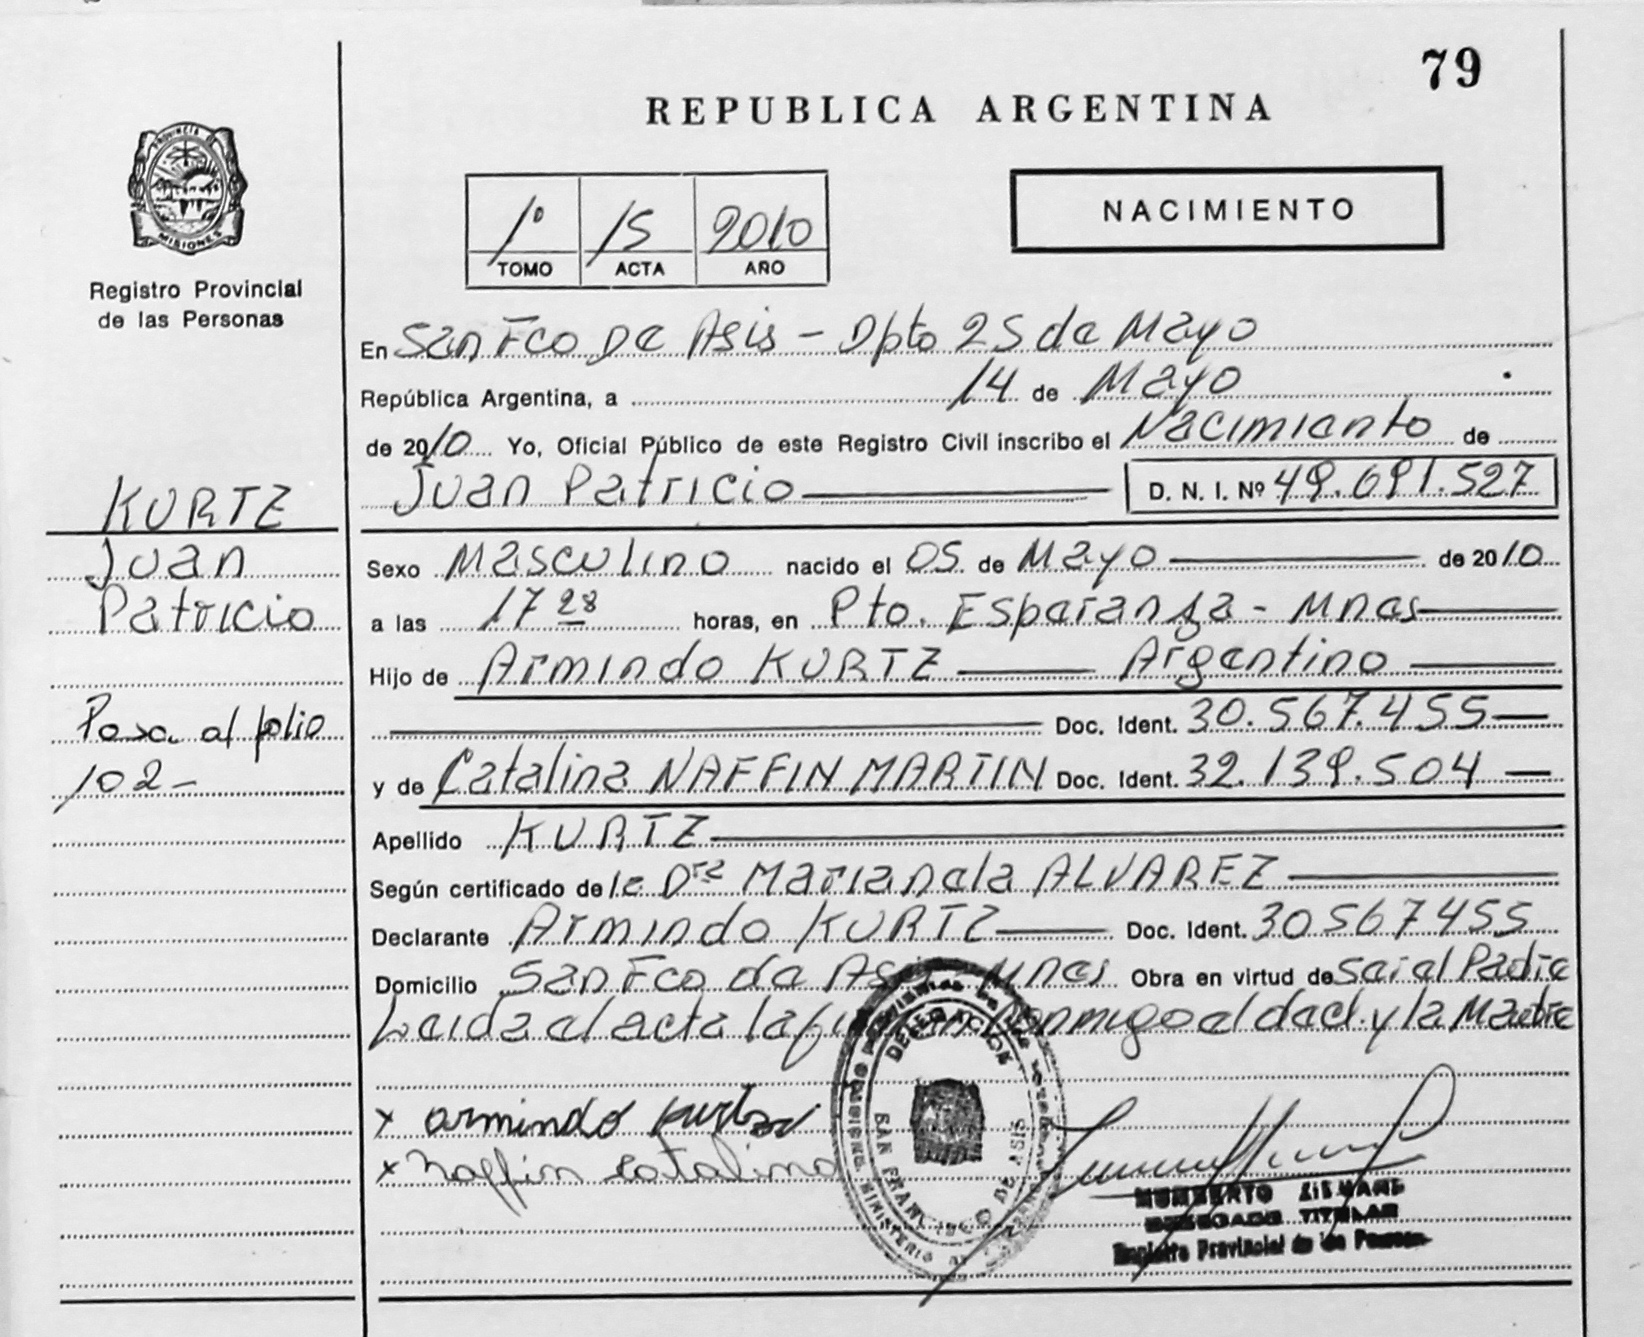 79
REPUBLICA ARGENTINA
PROVINCIA DE
MISIONES
Registro Provincial
de las Personas
1º 15 2010
TOMO ACTA AÑO
NACIMIENTO
En San Fco De Asis - Dpto 25 de Mayo
República Argentina, a 14 de Mayo
de 2010 Yo, Oficial Público de este Registro Civil inscribo el Nacimiento de
Juan Patricio D. N. I. Nº 49.691.527
KURTZ
Juan
Patricio
Pasa al folio
102-
Sexo Masculino nacido el 05 de Mayo de 2010
a las 17 28 horas, en Pto. Esperanza - Mnes
Hijo de Armindo KURTZ Argentino
Doc. Ident. 30.567.455
y de Catalina NAFFIN MARTIN Doc. Ident. 32.139.504
Apellido KURTZ
Según certificado de la Dra Marianela ALVAREZ
Declarante Armindo KURTZ Doc. Ident. 30567455
Domicilio San Fco de Asis - Mnes Obra en virtud de Ser el Padre
Leida el acta la firman conmigo el decl. y la Madre
x armindo kurtz
x Naffin catalina
DELEGACION
SAN FRANCISCO DE ASIS
MINISTERIO DE
HUMBERTO
DELEGADO TITULAR
Registro Provincial de las Personas